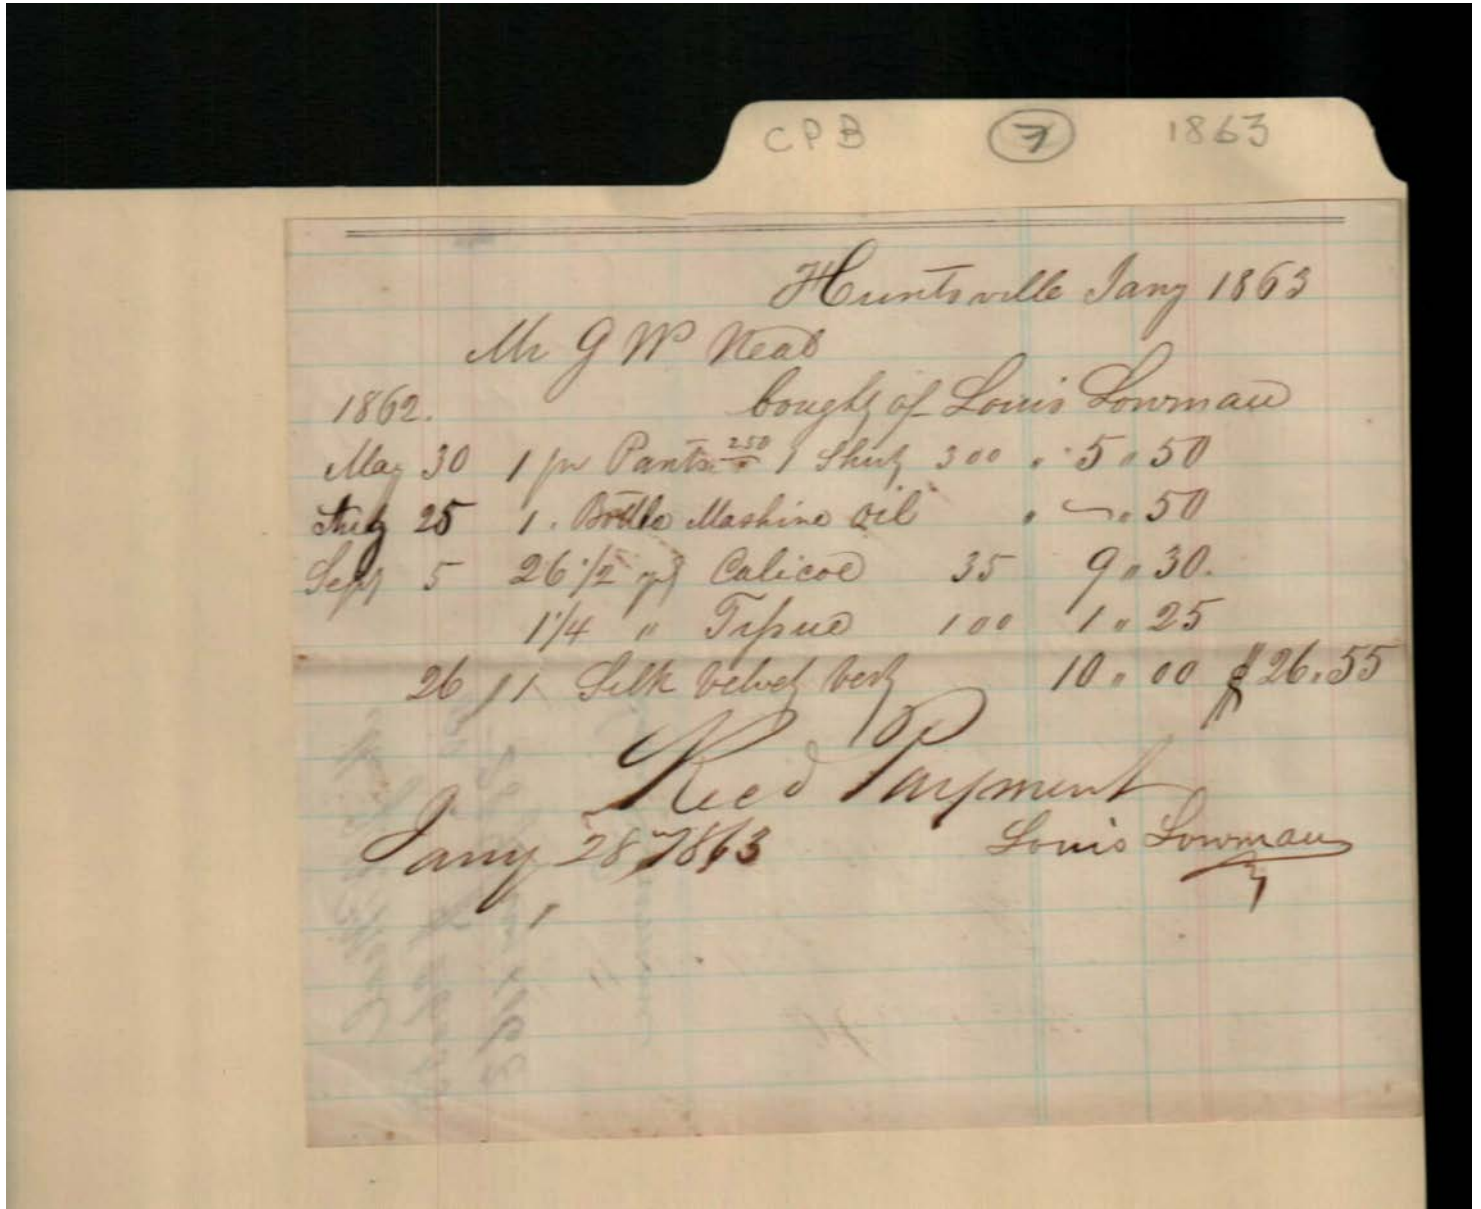 CPB 7 1863
Huntsville Jany 1863
Mr G W Neal
1862. bought of Louis Lowman
May 30 1 pr Pants 250 1 Shirt 300 " 5 " 50
Aug 25 1. Bottle Mashine oil " " 50
Sept 5 26 1/2 yds Calicoe 35 9 " 30.
1 1/4 " Tissue 100 1 " 25
26 1 Silk Velvet Vest 10 " 00 $26.55
Recd Payment
Jany 28 1863 Louis Lowman